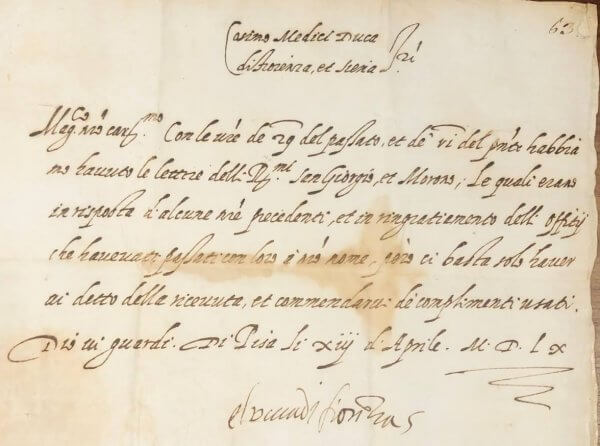 63
Cosimo Medici Duca
di Fiorenza, et Siena &c.
Mag.co n͠ro car.mo Con le v͠re de 29 del passato, et de vi del p͠nte habbia
mo havuto le lettere delli R.mi San Giorgio, et Morone, le quali erano
in risposta d'alcune n͠re precedenti, et in ringratiamento delli offitij
che havevati passati con loro à n͠ro nome, però ci basta solo haver
vi detto della ricevuta, et commendarvi de complimenti usati.
Dio vi guardi. Di Pisa li xiij d'Aprile. M. D. L X
el duca di fiorenza